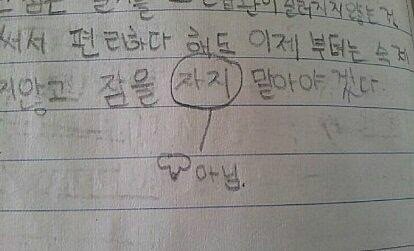 습관이 살려지지않는것
써서 편리하다 해도 이제 부터는 숙제
지않고 잠을 자지 말아야 겠다
아님.